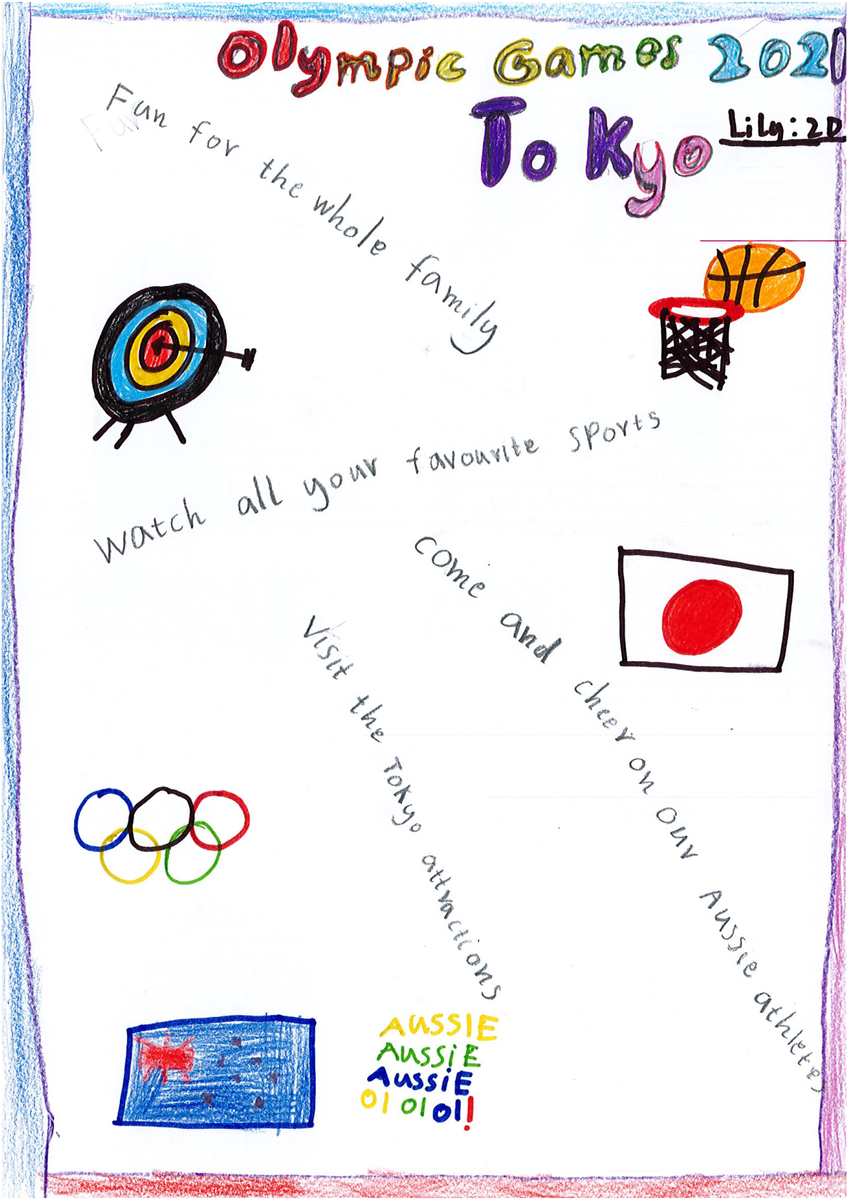 Olympic Games 2021
Tokyo
Lily: 2D
Fun for the whole family
Watch all your favourite sports
come and cheer on our Aussie athletes
Visit the Tokyo attractions
AUSSIE
AUSSiE
AUSSiE
OI OI OI!